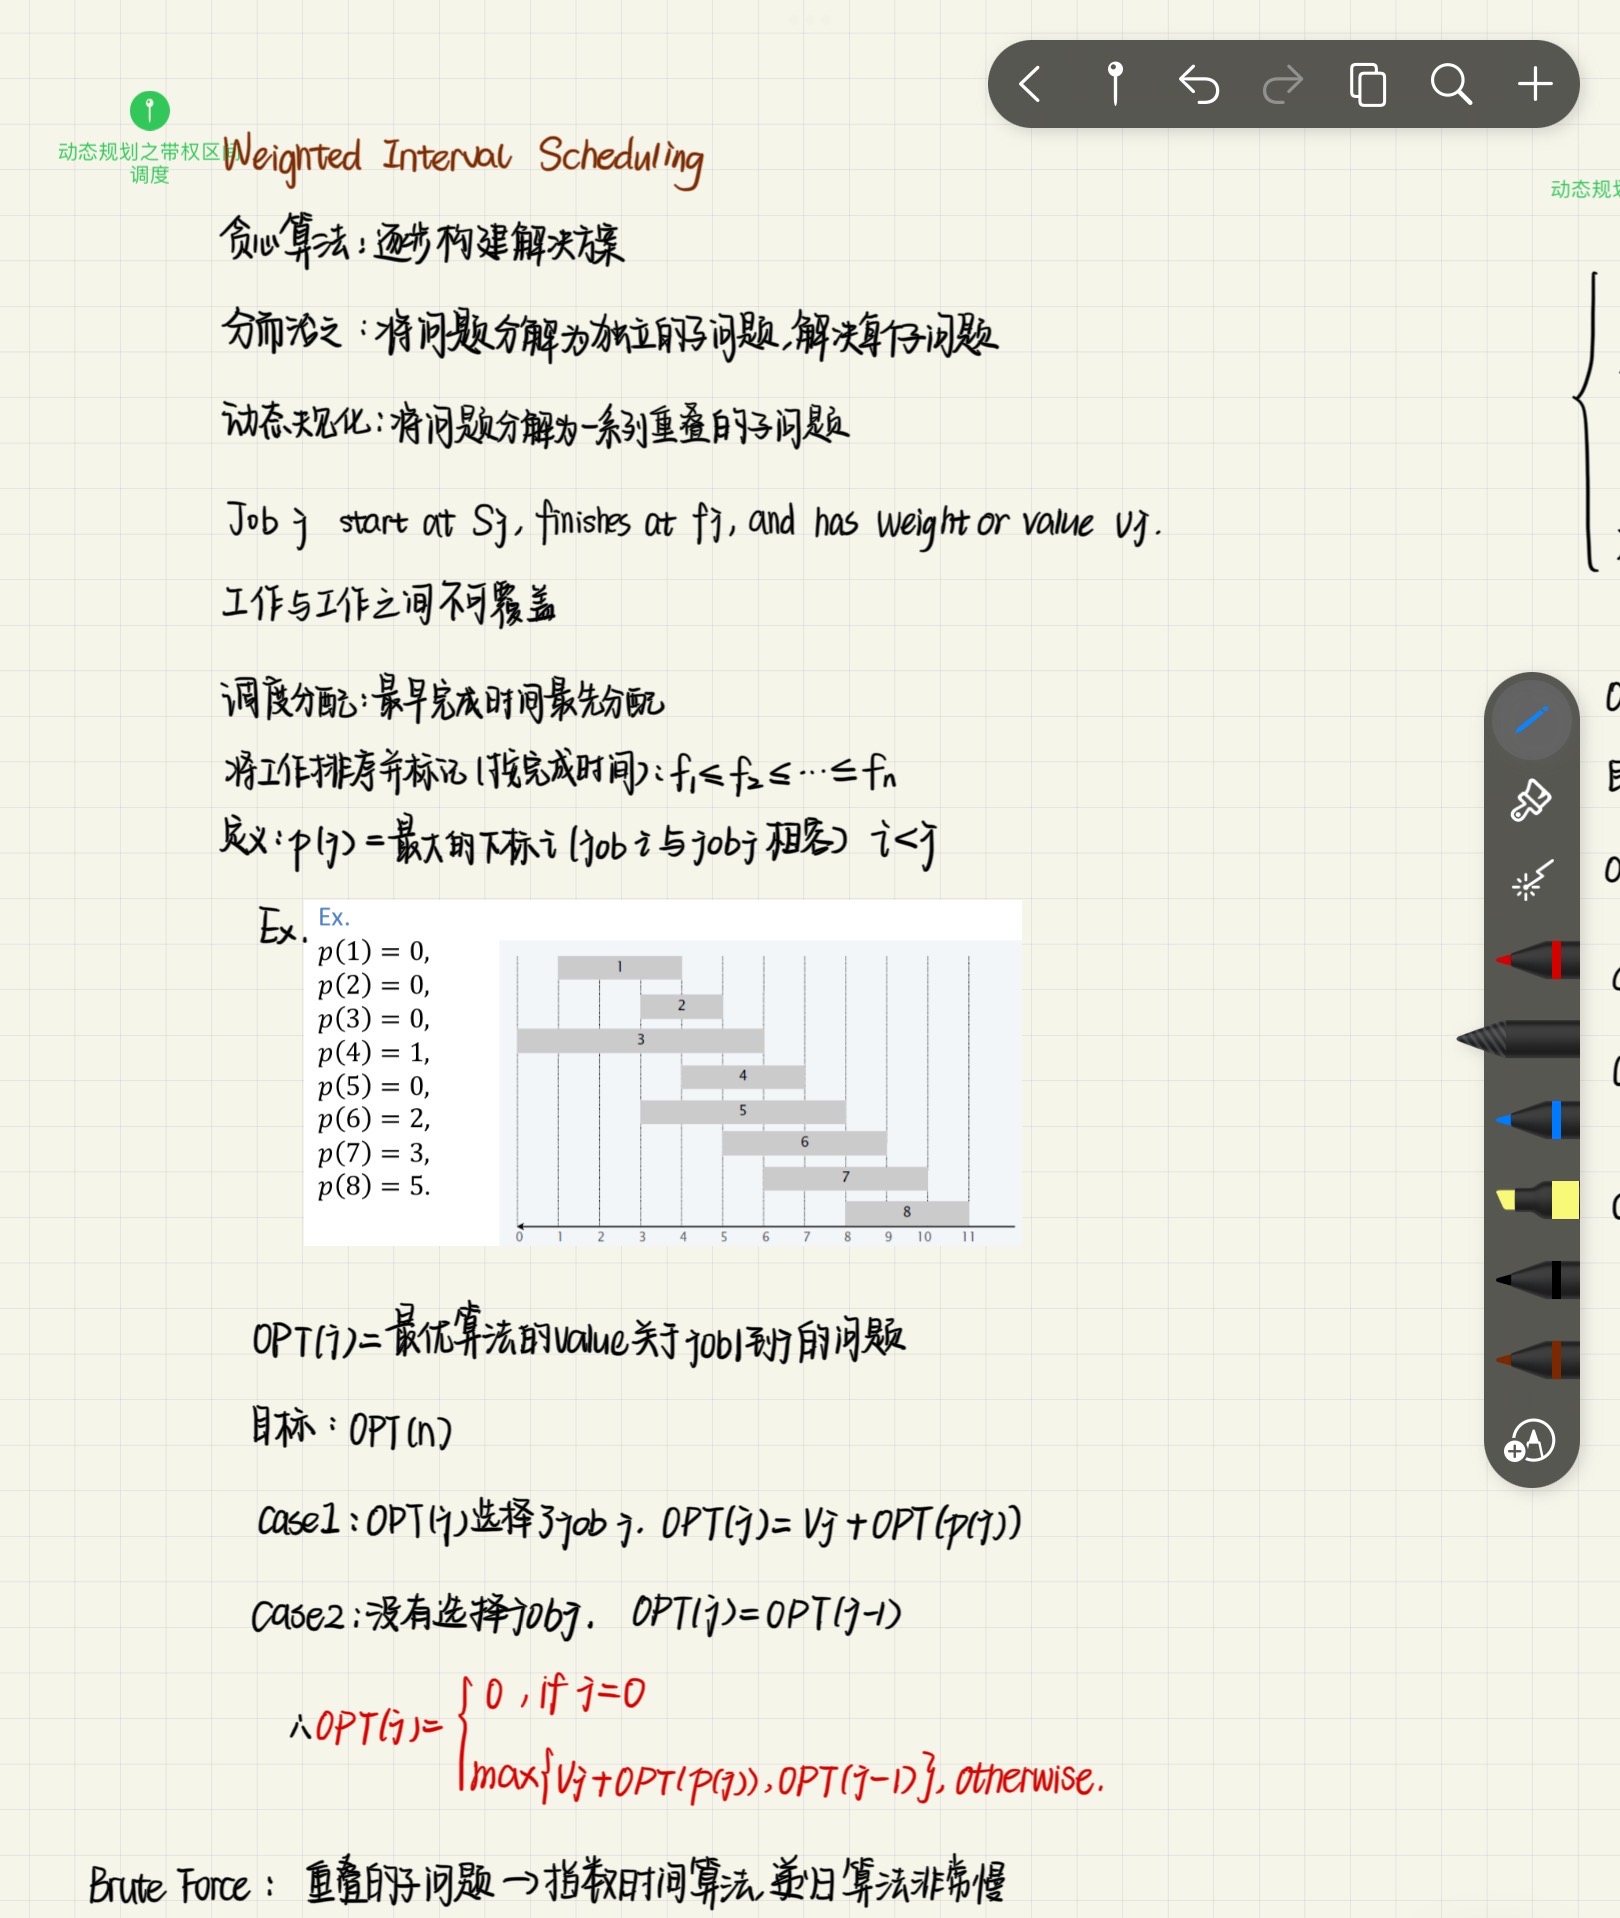 动态规划之带权区间
调度
Weighted Interval Scheduling
动态规划
贪心算法：逐步构建解决方案
分而治之：将问题分解为独立的子问题，解决每个子问题
动态规化：将问题分解为一系列重叠的子问题
Job j start at Sj, finishes at fj, and has weight or value vj.
工作与工作之间不可覆盖
调度分配：最早完成时间最先分配
将工作排序并标记（按完成时间）：f₁≤f₂≤…≤fn
定义：p(j)=最大的下标i（job i与job j相容） i<j
Ex.
Ex.
p(1) = 0,
p(2) = 0,
p(3) = 0,
p(4) = 1,
p(5) = 0,
p(6) = 2,
p(7) = 3,
p(8) = 5.
1
2
3
4
5
6
7
8
0 1 2 3 4 5 6 7 8 9 10 11
OPT(j)=最优算法的value关于job1到j的问题
目标：OPT(n)
Case1：OPT(j)选择了job j. OPT(j)=Vj+OPT(p(j))
Case2：没有选择jobj. OPT(j)=OPT(j-1)
∴OPT(j)= { 0 , if j=0
max{Vj+OPT(p(j)),OPT(j-1)}, otherwise.
Brute Force： 重叠的子问题→指数时间算法，递归算法非常慢